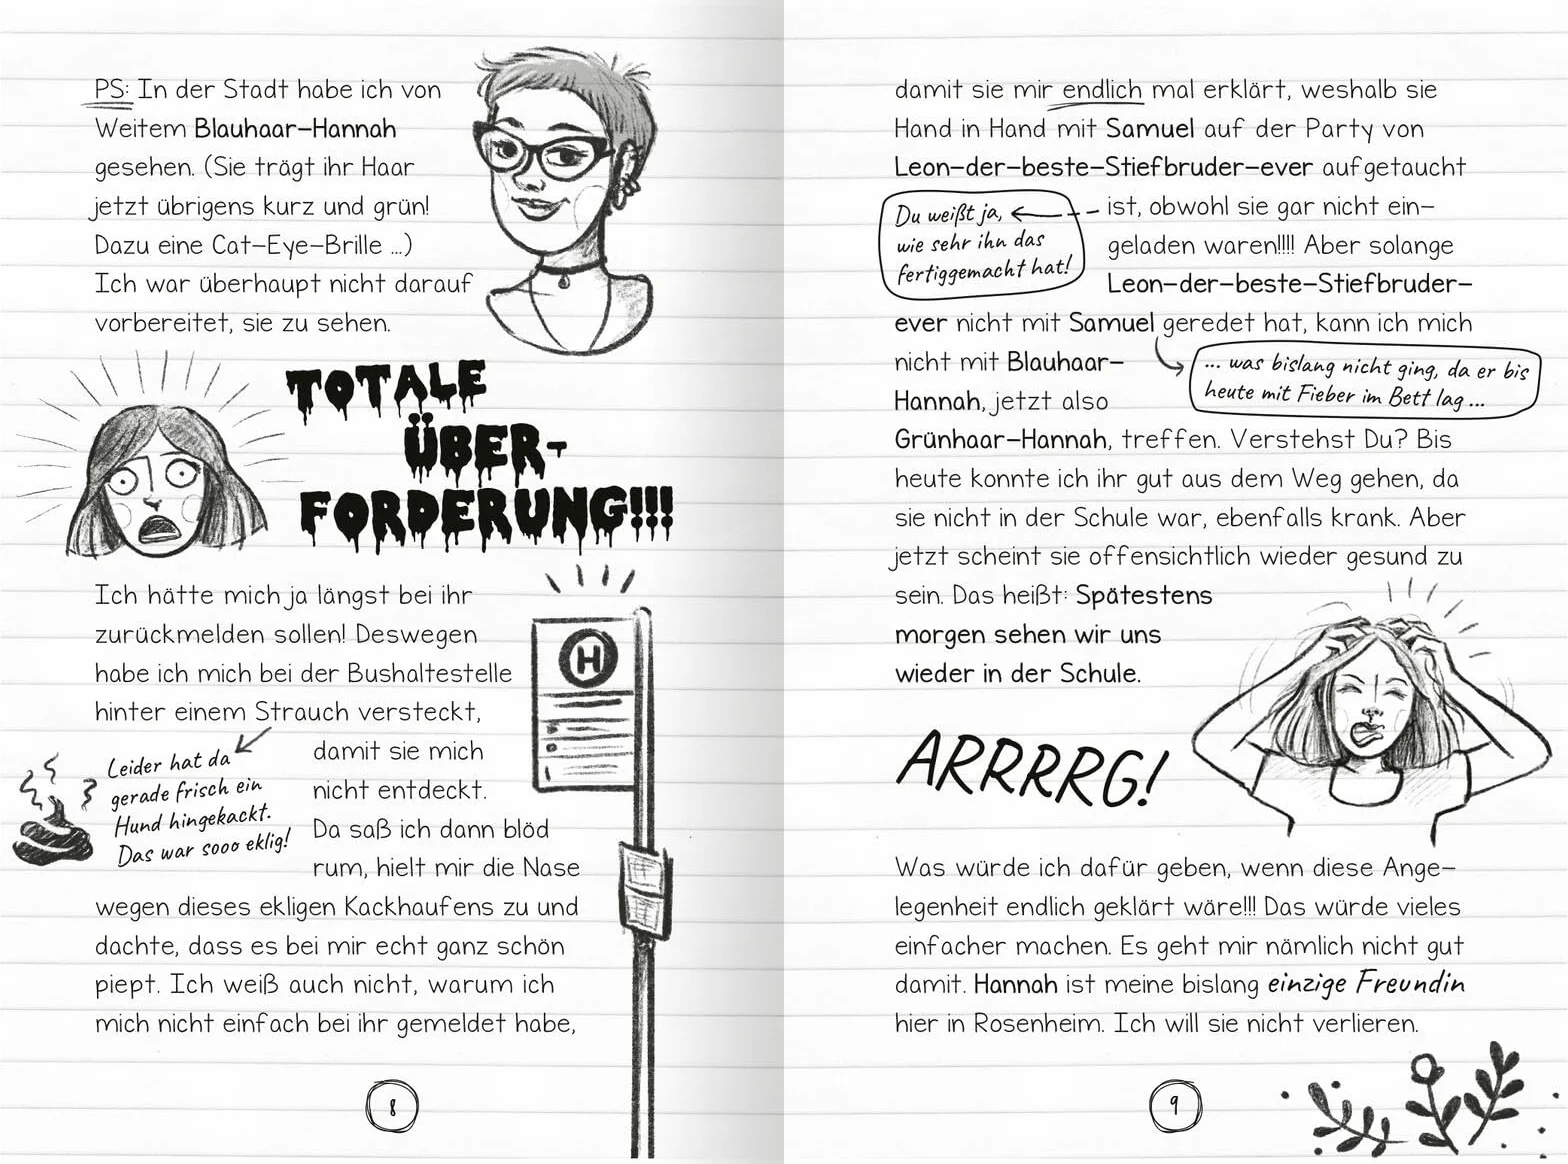 PS: In der Stadt habe ich von
Weitem Blauhaar-Hannah
gesehen. (Sie trägt ihr Haar
jetzt übrigens kurz und grün!
Dazu eine Cat-Eye-Brille ...)
Ich war überhaupt nicht darauf
vorbereitet, sie zu sehen.
TOTALE
ÜBER-
FORDERUNG!!!
Ich hätte mich ja längst bei ihr
zurückmelden sollen! Deswegen
habe ich mich bei der Bushaltestelle
hinter einem Strauch versteckt,
Leider hat da
gerade frisch ein
Hund hingekackt.
Das war sooo eklig!
damit sie mich
nicht entdeckt.
Da saß ich dann blöd
rum, hielt mir die Nase
wegen dieses ekligen Kackhaufens zu und
dachte, dass es bei mir echt ganz schön
piept. Ich weiß auch nicht, warum ich
mich nicht einfach bei ihr gemeldet habe,
H
8
damit sie mir endlich mal erklärt, weshalb sie
Hand in Hand mit Samuel auf der Party von
Leon-der-beste-Stiefbruder-ever aufgetaucht
ist, obwohl sie gar nicht ein-
geladen waren!!!! Aber solange
Leon-der-beste-Stiefbruder-
Du weißt ja,
wie sehr ihn das
fertiggemacht hat!
ever nicht mit Samuel geredet hat, kann ich mich
nicht mit Blauhaar-
Hannah, jetzt also
... was bislang nicht ging, da er bis
heute mit Fieber im Bett lag ...
Grünhaar-Hannah, treffen. Verstehst Du? Bis
heute konnte ich ihr gut aus dem Weg gehen, da
sie nicht in der Schule war, ebenfalls krank. Aber
jetzt scheint sie offensichtlich wieder gesund zu
sein. Das heißt: Spätestens
morgen sehen wir uns
wieder in der Schule.
ARRRRG!
Was würde ich dafür geben, wenn diese Ange-
legenheit endlich geklärt wäre!!! Das würde vieles
einfacher machen. Es geht mir nämlich nicht gut
damit. Hannah ist meine bislang einzige Freundin
hier in Rosenheim. Ich will sie nicht verlieren.
9